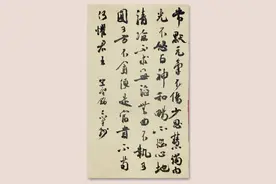 常默元氣不傷少思慧燭內
光不怒百神和暢不惱心地
清涼不求無諂無曲不執可
圓可方不貪便是富貴不苟
何懼君王